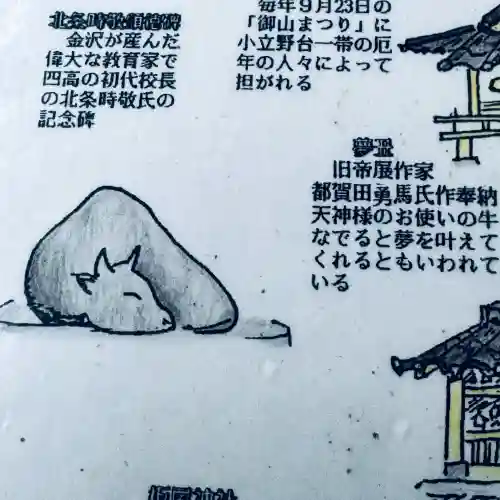 北条時敬頌徳碑
金沢が産んだ
偉大な教育家で
四高の初代校長
の北条時敬氏の
記念碑
毎年9月23日の
「御山まつり」に
小立野台一帯の厄
年の人々によって
担がれる
夢温
旧帝展作家
都賀田勇馬氏作奉納
天神様のお使いの牛
なでると夢を叶えて
くれるともいわれて
いる